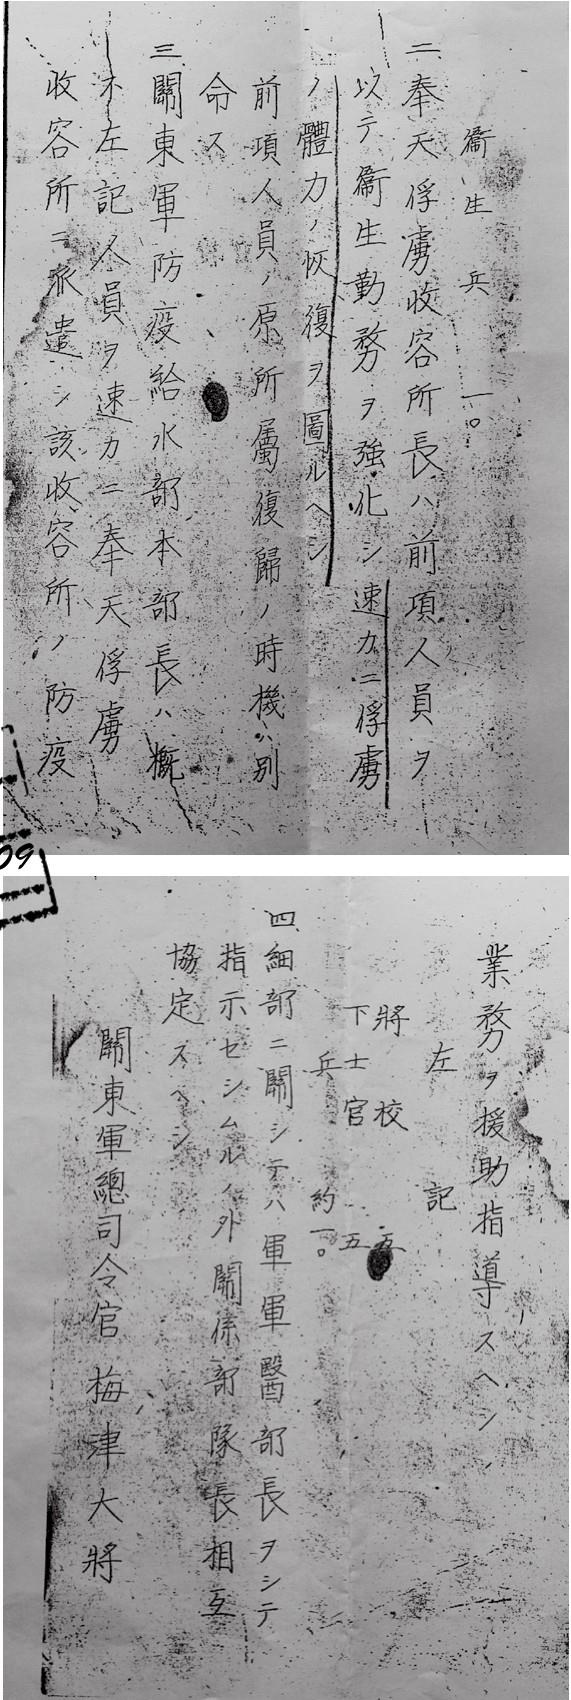 衞生兵 一〇
二、奉天俘虜收容所長ハ前項人員ヲ
以テ衞生勤務ヲ強化シ速カニ俘虜
ノ體力ノ恢復ヲ圖ルヘシ
前項人員ノ原所屬復歸ノ時機ハ別
命ス
三、關東軍防疫給水部本部長ハ概
不左記人員ヲ速カニ奉天俘虜
收容所ニ派遣シ該收容所ノ防疫
09
業務ヲ援助指導スヘシ
左記
將校 五
下士官 五
兵 約一〇
四、細部ニ關シテハ軍軍醫部長ヲシテ
指示セシムルノ外關係部隊長相互
協定スヘシ
關東軍總司令官 梅津大將